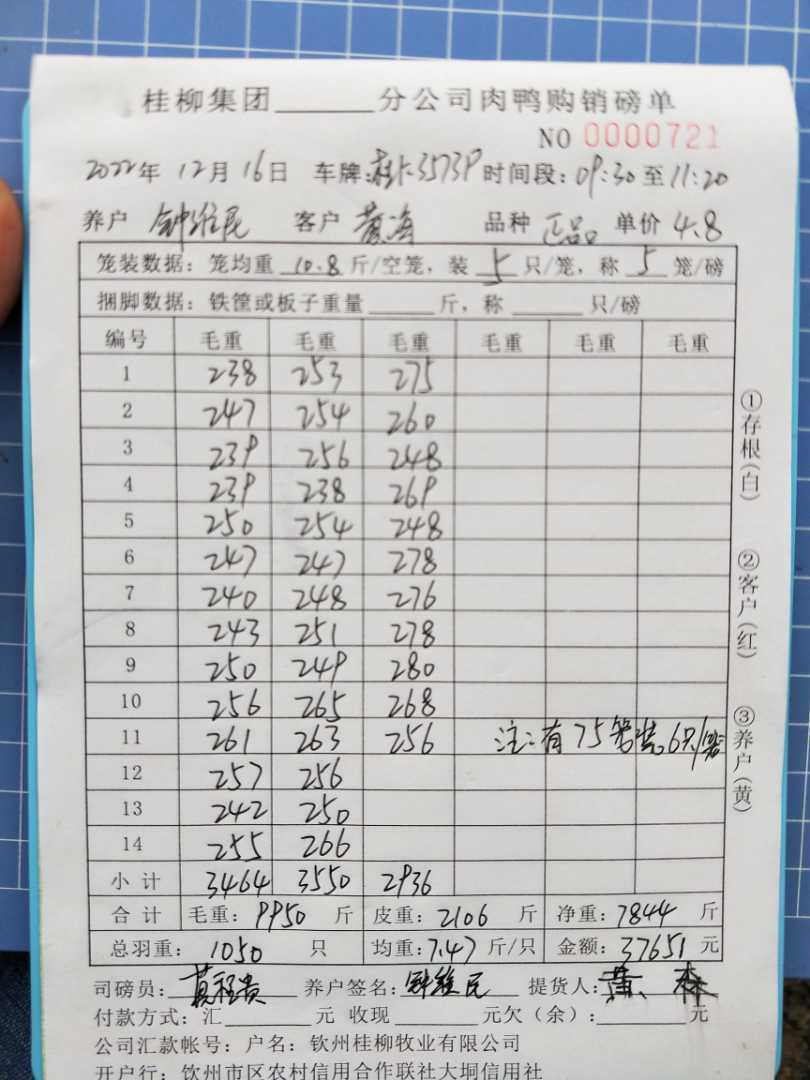 桂柳集团______分公司肉鸭购销磅单
NO 0000721
2022年 12月 16日 车牌:桂K35739 时间段:09:30至11:20
养户 钟维民 客户 黄海 品种 正品 单价 4.8
笼装数据：笼均重 10.8 斤/空笼，装 5 只/笼，称 5 笼/磅
捆脚数据：铁筐或板子重量______斤，称______只/磅
编号 毛重 毛重 毛重 毛重 毛重 毛重
1 238 253 275
2 247 254 260
3 239 256 248
4 239 238 269
5 250 254 248
6 247 247 278
7 240 248 276
8 243 251 278
9 250 249 280
10 256 265 268
11 261 263 256 注:有75笼装6只/笼
12 257 256
13 242 250
14 255 266
小计 3464 3550 2936
合计 毛重: 9950 斤 皮重: 2106 斤 净重: 7844 斤
总羽重: 1050 只 均重: 7.47 斤/只 金额: 37651 元
司磅员: 养户签名: 钟维民 提货人: 黄森
付款方式: 汇______元 收现______元欠（余）:______元
公司汇款帐号：户名：钦州桂柳牧业有限公司
开户行：钦州市区农村信用合作联社大垌信用社
①存根(白)
②客户(红)
③养户(黄)